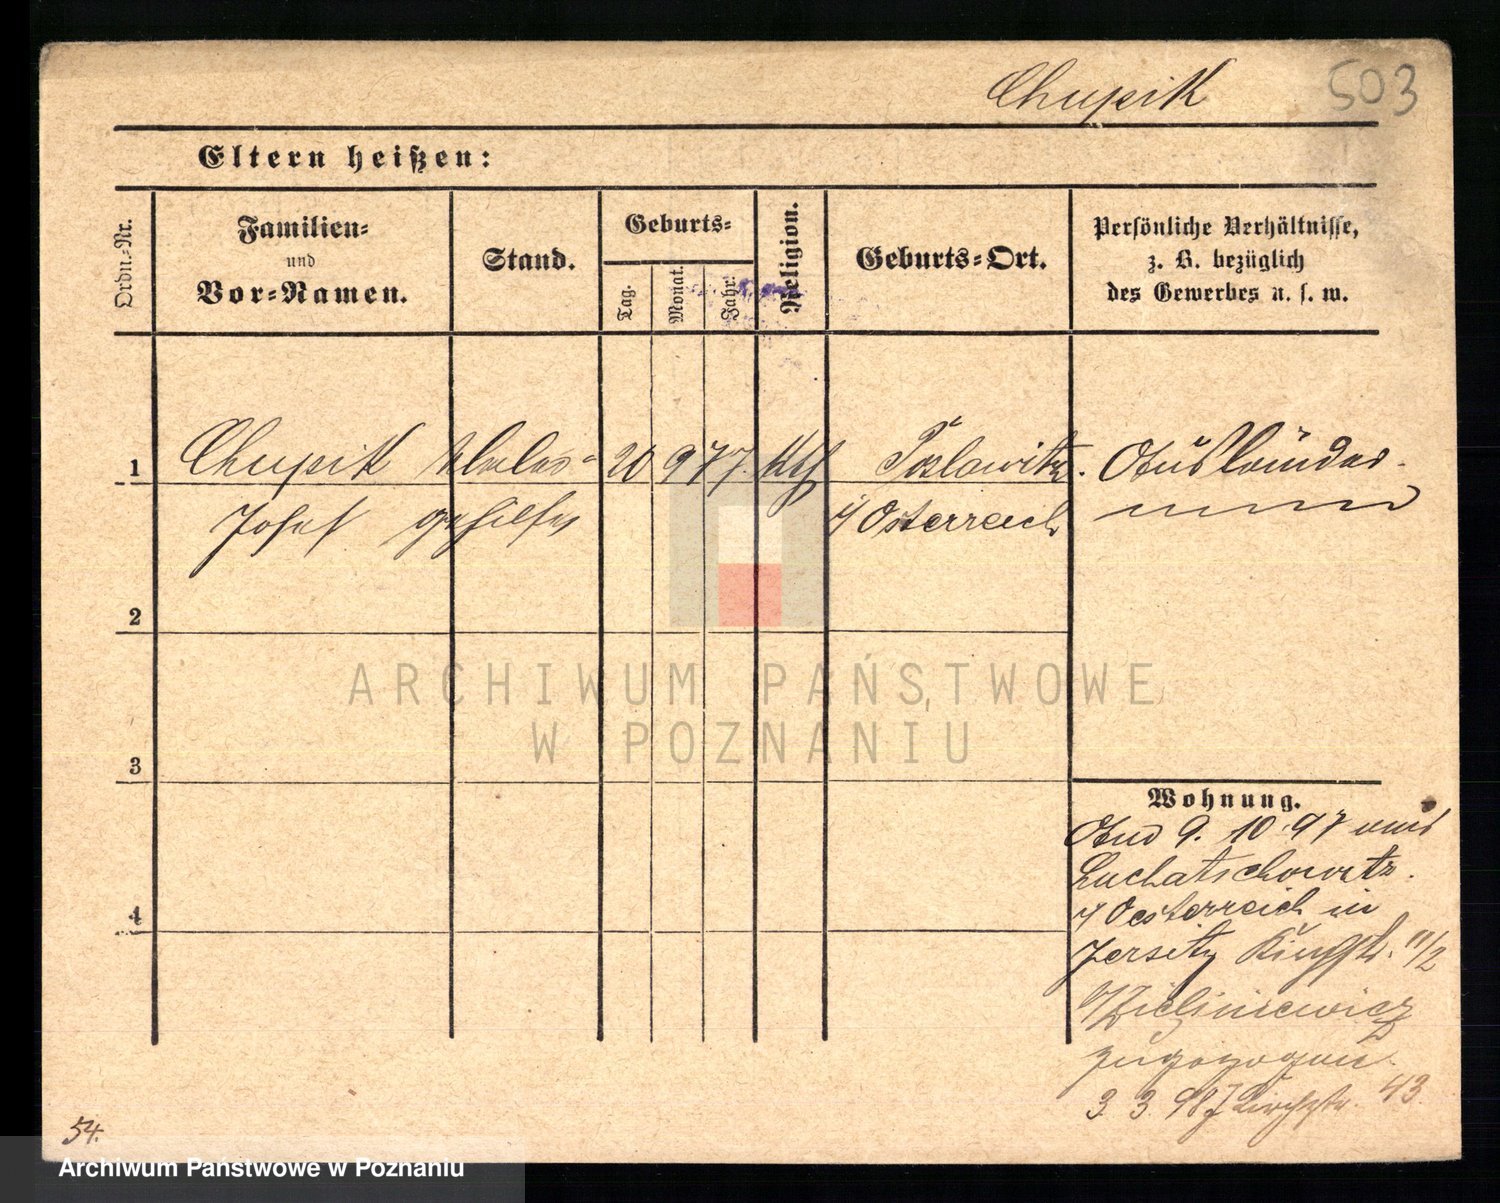 Chupik 503
Eltern heißen:
Ordn.-Nr.
Familien-
und
Vor-Namen.
Stand.
Geburts-
Tag.
Monat.
Jahr.
Religion.
Geburts-Ort.
Persönliche Verhältnisse,
z. B. bezüglich
des Gewerbes u. s. w.
1 Chupik 20 9 77. Kth Ausländer.
Josef gehilfe Österreich
2
ARCHIWUM PAŃSTWOWE
W POZNANIU
3
Wohnung.
9. 10. 97 aus
Luchatschowitz.
Oesterreich in
Jersitz 11/2
4
zugezogen.
3. 3. 98 43
54.
Archiwum Państwowe w Poznaniu